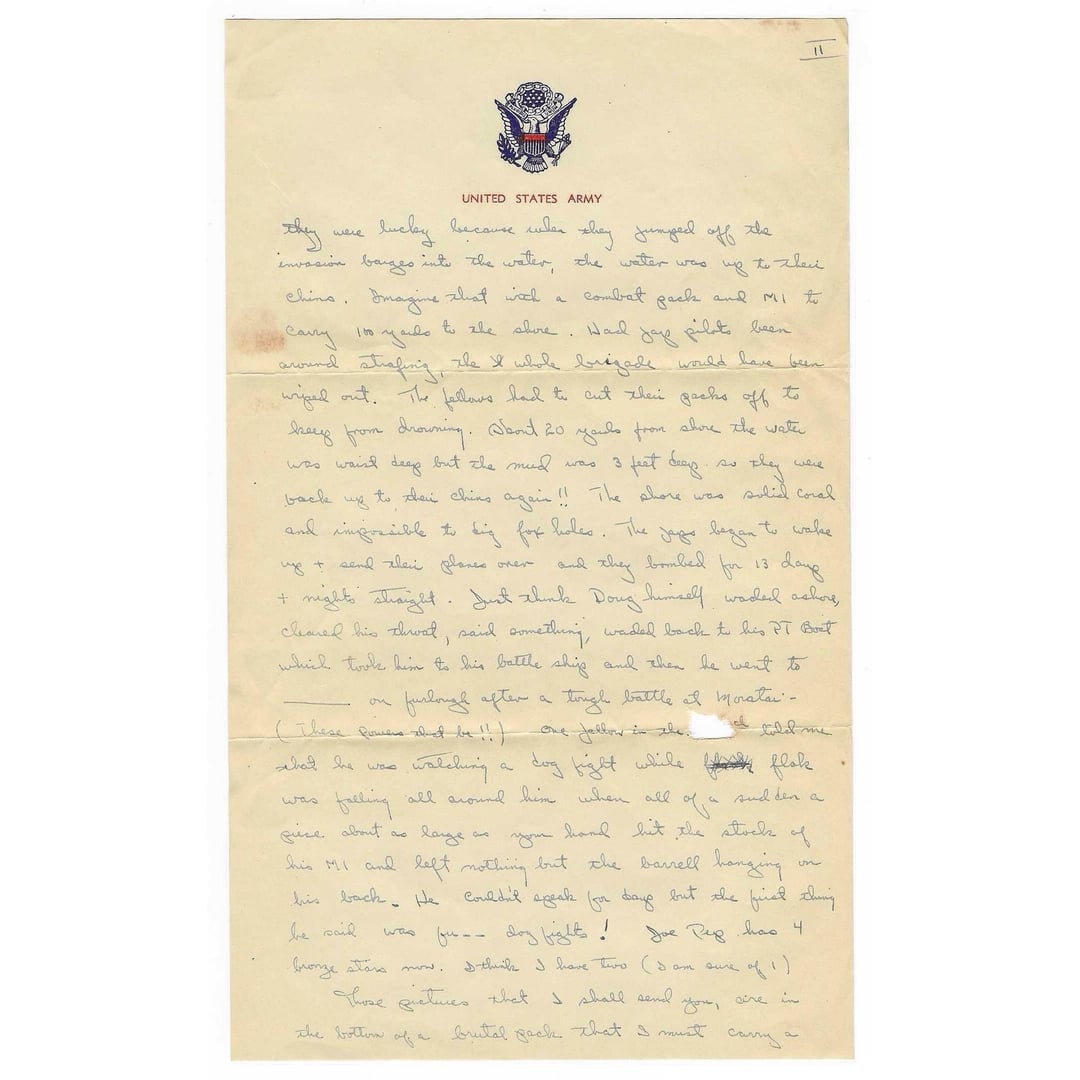 11
UNITED STATES ARMY
they were lucky because when they jumped off the
invasion barges into the water, the water was up to their
chins. Imagine that with a combat pack and M1 to
carry 100 yards to the shore. Had Jap pilots been
around strafing, the whole brigade would have been
wiped out. The fellows had to cut their packs off to
keep from drowning. About 20 yards from shore the water
was waist deep but the mud was 3 feet deep so they were
back up to their chins again!! The shore was solid coral
and impossible to dig fox holes. The Japs began to wake
up + send their planes over and they bombed for 13 days
+ nights straight. Just think Doug himself waded ashore,
cleared his throat, said something, waded back to his PT Boat
which took him to his battle ship and then he went to
______ on furlough after a tough battle at Moratai -
(These powers that be!!) One fellow in the told me
that he was watching a dog fight while flak
was falling all around him when all of a sudden a
piece about as large as your hand hit the stock of
his M1 and left nothing but the barrell hanging on
his back. He couldn't speak for days but the first thing
he said was fu-- dog fights! Joe Pep has 4
bronze stars now. I think I have two (I am sure of 1)
Those pictures that I shall send you, are in
the bottom of a brutal pack that I must carry a